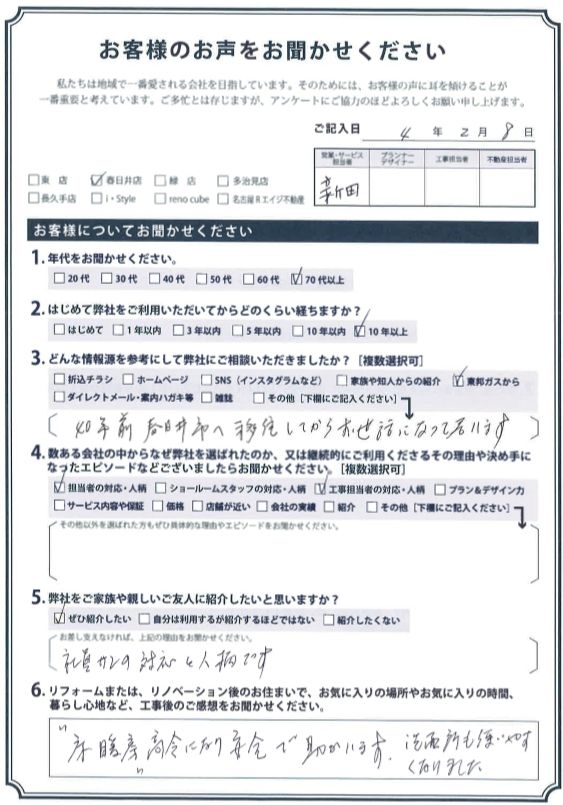 お客様のお声をお聞かせください
私たちは地域で一番愛される会社を目指しています。そのためには、お客様の声に耳を傾けることが
一番重要と考えています。ご多忙とは存じますが、アンケートにご協力のほどよろしくお願い申し上げます。
ご記入日 4 年 2 月 8 日
営業・サービス担当者 プランナーデザイナー 工事担当者 不動産担当者
新田
□東 店 ☑春日井店 □緑 店 □多治見店
□長久手店 □i・Style □reno cube □名古屋Rエイジ不動産
お客様についてお聞かせください
1. 年代をお聞かせください。
□20代 □30代 □40代 □50代 □60代 ☑70代以上
2. はじめて弊社をご利用いただいてからどのくらい経ちますか?
□はじめて □1年以内 □3年以内 □5年以内 □10年以内 ☑10年以上
3. どんな情報源を参考にして弊社にご相談いただきましたか?[複数選択可]
□折込チラシ □ホームページ □SNS(インスタグラムなど) □家族や知人からの紹介 ☑東邦ガスから
□ダイレクトメール・案内ハガキ等 □雑誌 □その他[下欄にご記入ください]
40年前 春日井市へ移住してからお世話になって居います
4. 数ある会社の中からなぜ弊社を選ばれたのか、又は継続的にご利用くださるその理由や決め手に
なったエピソードなどございましたらお聞かせください。[複数選択可]
☑担当者の対応・人柄 □ショールームスタッフの対応・人柄 ☑工事担当者の対応・人柄 □プラン&デザイン力
□サービス内容や保証 □価格 □店舗が近い □会社の実績 □紹介 □その他[下欄にご記入ください]
その他以外を選ばれた方もぜひ具体的な理由やエピソードをお聞かせください。
5. 弊社をご家族や親しいご友人に紹介したいと思いますか?
☑ぜひ紹介したい □自分は利用するが紹介するほどではない □紹介したくない
お差し支えなければ、上記の理由をお聞かせください。
社員さんの対応と人柄です
6. リフォームまたは、リノベーション後のお住まいで、お気に入りの場所やお気に入りの時間、
暮らし心地など、工事後のご感想をお聞かせください。
"床暖房" 高令になり安全で助かります. 洗面所も使いやすく
なりました